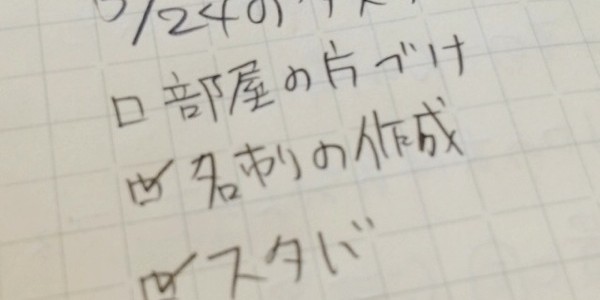 /24の
□ 部屋の片づけ
☑ 名刺の作成
☑ スタバ